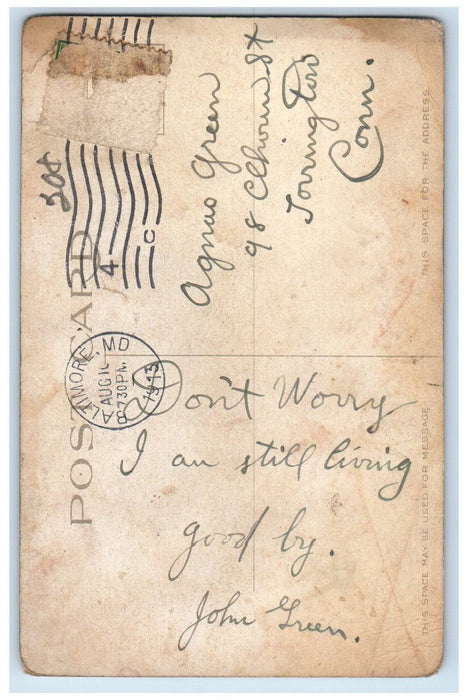 POST CARD
BALTIMORE, MD
AUG
730PM
1913
4
C
Don't Worry
I am still living
good by.
John Green.
Agnus Green
98 Clhoun St
Torrington
Conn.
THIS SPACE MAY BE USED FOR MESSAGE
THIS SPACE FOR THE ADDRESS